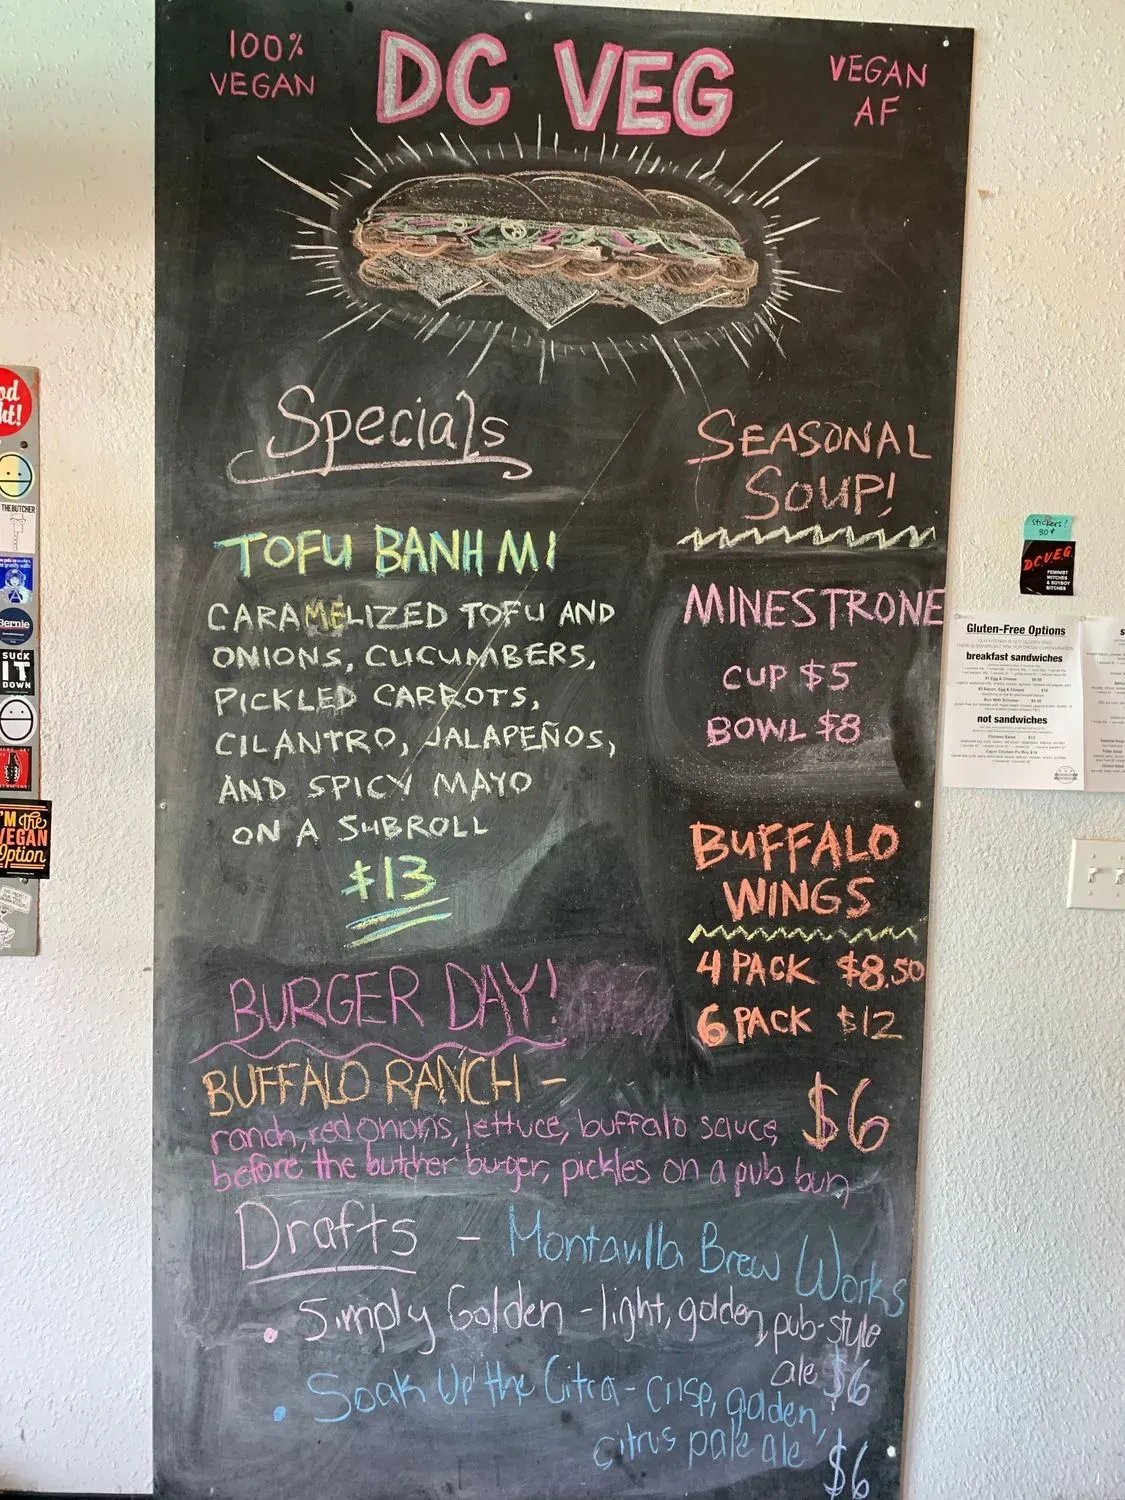 100%
VEGAN
DC VEG
VEGAN
AF
Specials
TOFU BANH MI
CARAMELIZED TOFU AND
ONIONS, CUCUMBERS,
PICKLED CARROTS,
CILANTRO, JALAPEÑOS,
AND SPICY MAYO
ON A SUBROLL
$13
SEASONAL
SOUP!
MINESTRONE
CUP $5
BOWL $8
BUFFALO
WINGS
4 PACK $8.50
6 PACK $12
BURGER DAY!
BUFFALO RANCH -
$6
ranch, red onions, lettuce, buffalo sauce,
before the butcher burger, pickles on a pub bun
Drafts - Montavilla Brew Works
• Simply Golden - light, golden, pub-style
ale $6
• Soak Up the Citra - crisp, golden,
citrus pale ale
$6
THE BUTCHER
Bernie
SUCK
IT
DOWN
I'M the
VEGAN
Option
stickers!
D.C.V.E.G.
FEMINIST
WITCHES
& BOYBOY
BITCHES
Gluten-Free Options
breakfast sandwiches
not sandwiches